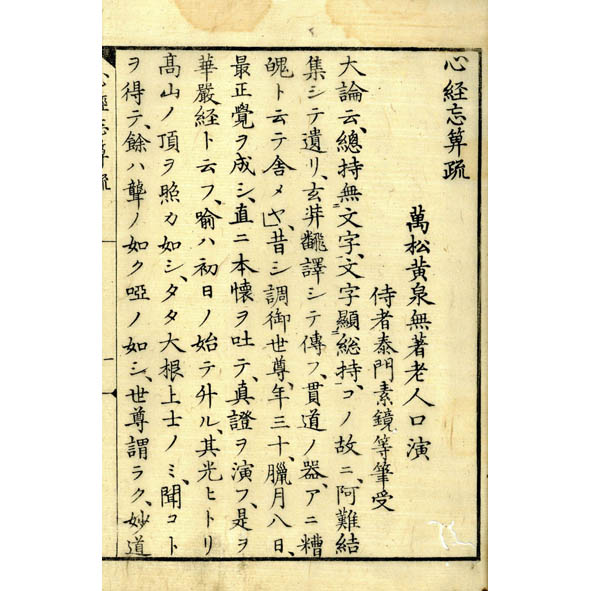 心経忘算疏
萬松黄泉無著老人口演
侍者泰門素鏡等筆受
大論云、總持無文字、文字顯総持、コノ故ニ、阿難結
集シテ遺リ、玄弉飜譯シテ傳フ、貫道ノ器、アニ糟
魄ト云テ舎メヤ、昔シ調御世尊、年三十、臘月八日、
最正覺ヲ成シ、直ニ本懐ヲ吐テ、真證ヲ演フ、是ヲ
華嚴経ト云フ、喻ハ初日ノ始テ舛ル、其光ヒトリ
髙山ノ頂ヲ照カ如シ、タタ大根上士ノミ、聞コト
ヲ得テ、餘ハ聾ノ如ク啞ノ如シ、世尊謂ラク、妙道
心經忘算疏